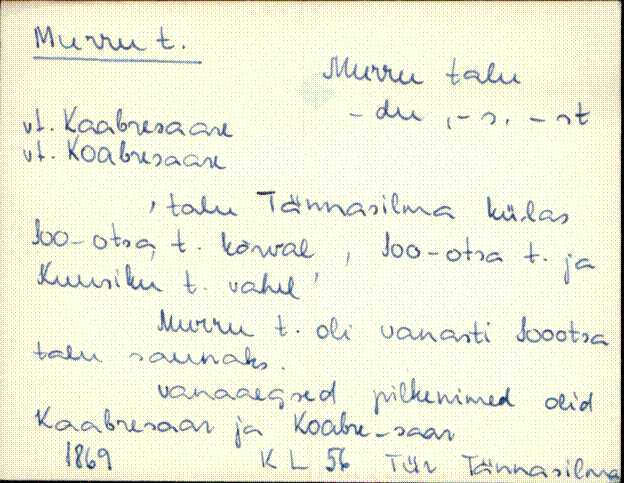 Murru t.
Murru talu
- du, - s, - st
vt. Kaabresaare
vt. Koabresaare
, talu Tännasilma külas
Soo-otsa t. kõrval, Soo-otsa t. ja
Kuusiku t. vahel'
Murru t. oli vanasti Soootsa
talu saunaks.
vanaaegsed pilkenimed olid
Kaabresaar ja Koabre-saar
1869 KL 56 Tür Tännasilma